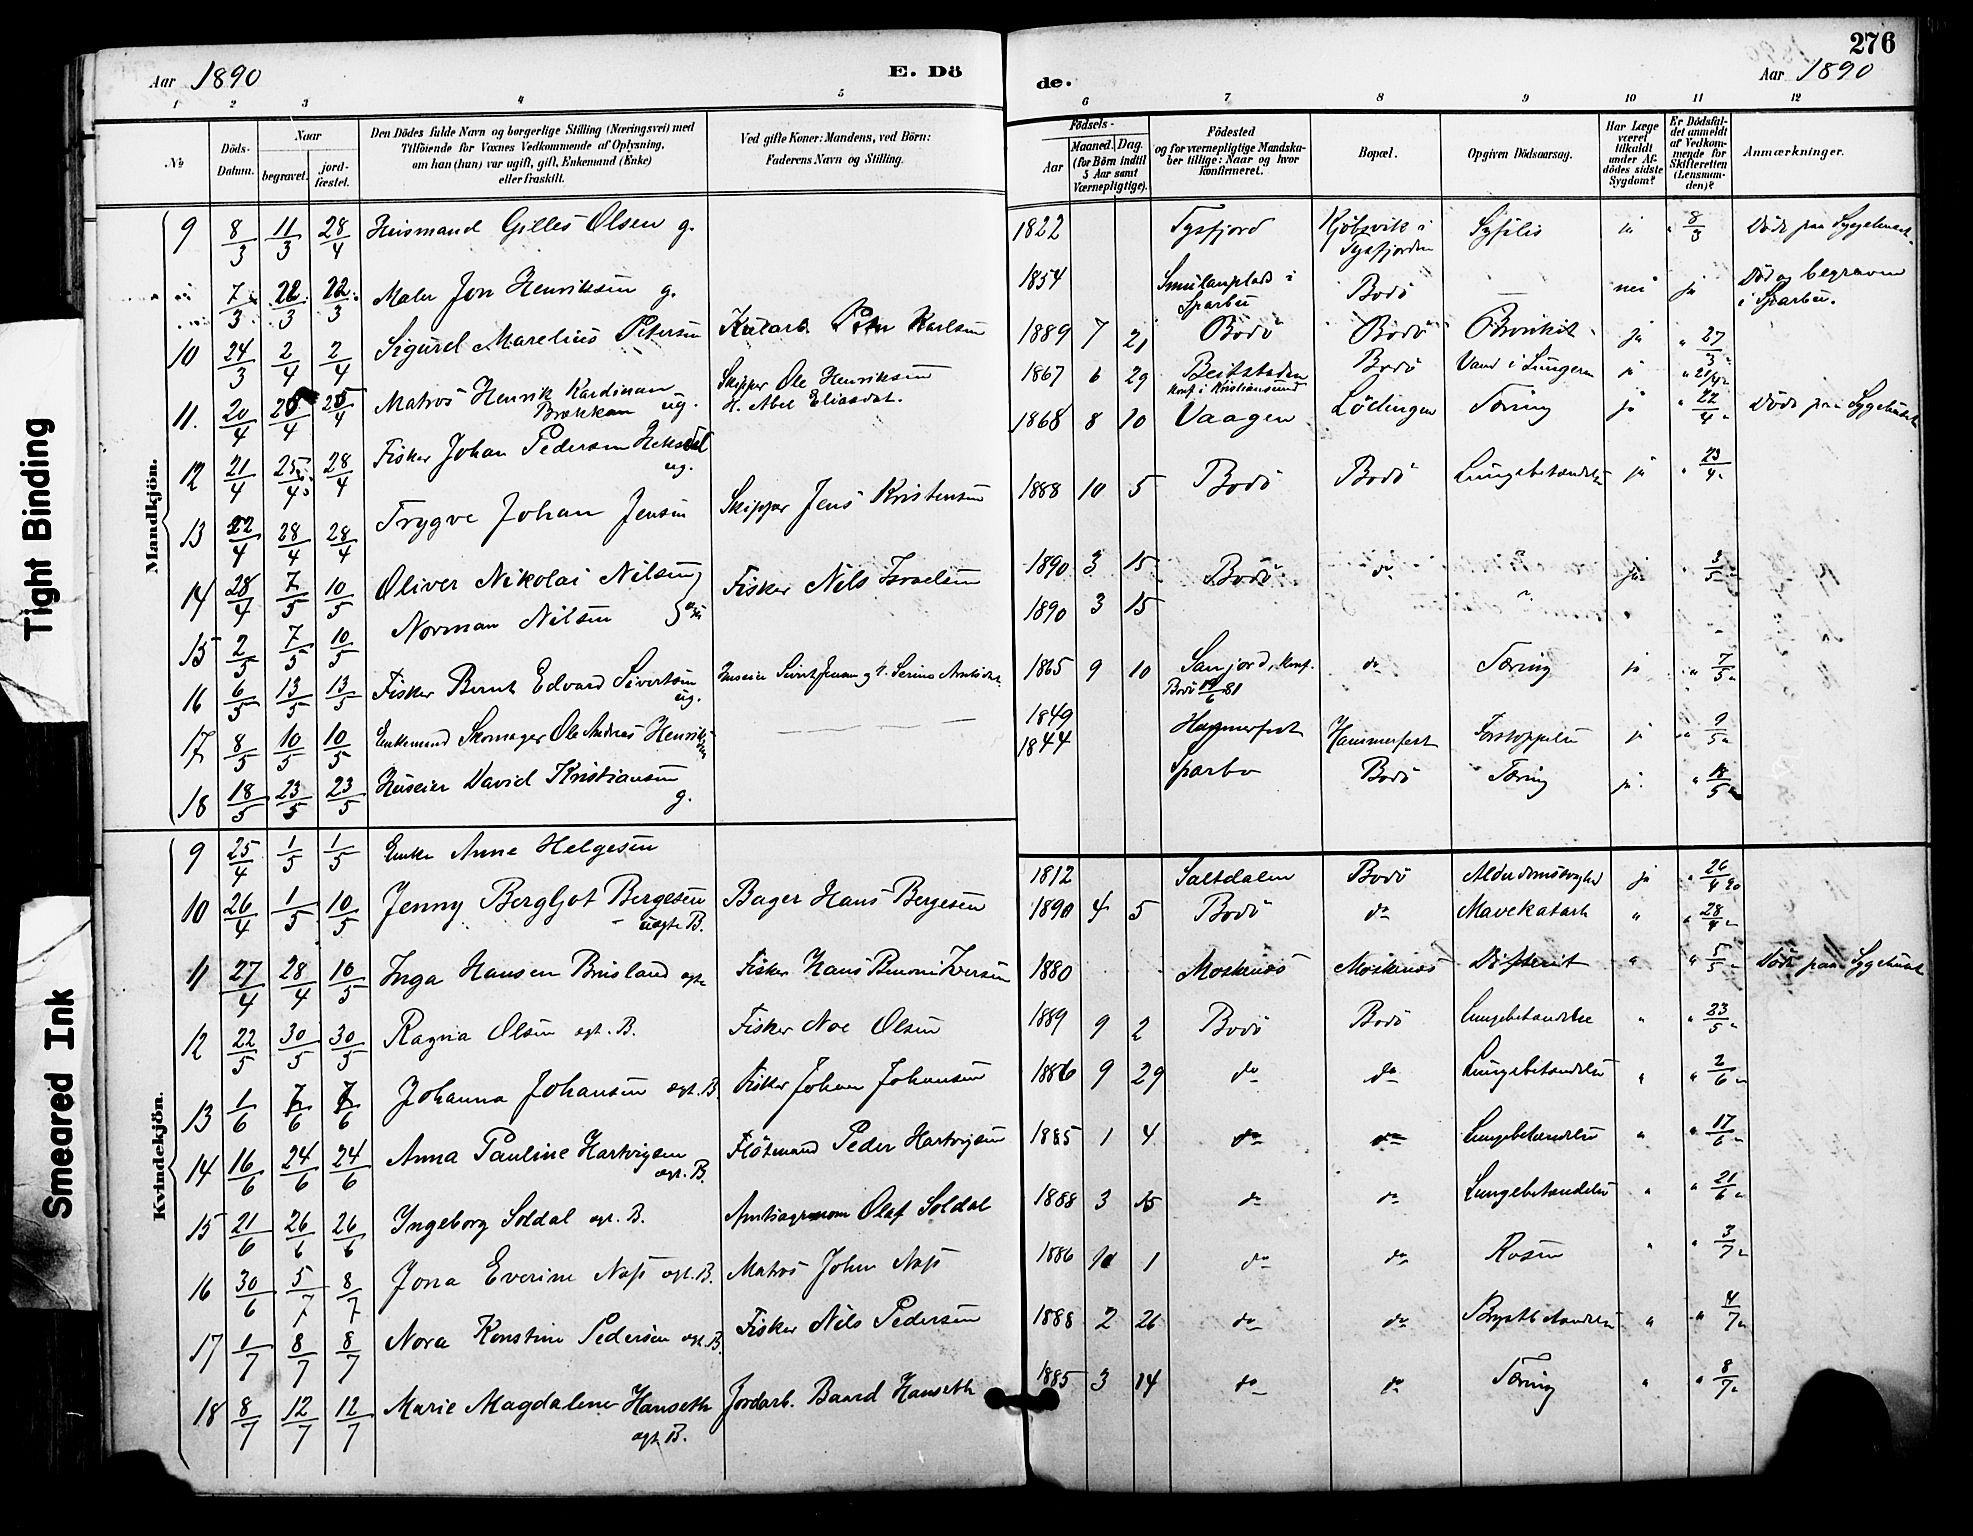 276
Aar 1890
E. Dö
de.
Aar 1890
1 2 3 4 5 6 7 8 9 10 11 12
No
Döds-Datum.
Naar
begravet.
jord-fæstet.
Den Dödes fulde Navn og borgerlige Stilling (Næringsvei) med
Tilföiende for Voxnes Vedkommende af Oplysning,
om han (hun) var ugift, gift, Enkemand (Enke)
eller fraskilt.
Ved gifte Koner: Mandens, ved Börn:
Faderens Navn og Stilling.
Födsels-
Aar
Maaned. Dag.
(for Börn indtil
5 Aar samt
Værnepligtige).
Födested
og for værnepligtige Mandska-
ber tillige: Naar og hvor
konfirmeret.
Bopæl.
Opgiven Dödsaarsag.
Har Læge
været
tilkaldt
under Af-
dödes sidste
Sygdom?
Er Dödsfal-
det anmeldt
af Vedkom-
mende for
Skifteretten
(Lensman-
den)?
Anmærkninger.
Mandkjön.
9 8/3 11/3 28/4 Huismand Gilles Olsen g. 1822 Tysfjord Kjöbsvik i Tysfjorden Syfilis ja " 8/3 Döde paa Sygehuset.
" 7/3 22/3 22/3 Maler Jon Henriksen g. 1854 i Sparbu Bodö — nei ja Död og begraven i Sparbu.
10 24/3 2/4 2/4 Sigurd Marelius Petersen Kularb. Peter Karlsen 1889 7 21 Bodö Bodö Bronkit ja " 27/3
11. 20/4 25/4 25/4 Matros Henrik Kardinan Brækkan ug. Skipper Ole Henriksen H. Abel Eliasdat. 1867 6 29 Beitstaden konf. i Kristiansund Bodö Vand i Lungen ja " 21/4
12 21/4 25/4 28/4 Fisker Johan Pedersen ug. 1868 8 10 Vaagen Lödingen Tæring ja " 22/4 Döde paa Sygehuset
13 22/4 28/4 28/4 Trygve Johan Jensen Skipper Jens Kristensen 1888 10 5 Bodö Bodö Lungebetændelse ja " 23/4
14 28/4 7/5 10/5 Oliver Nikolai Nilsen Fisker Nils Israelsen 1890 3 15 Bodö do ? ja " 3/5
15 2/5 7/5 10/5 Norman Nilsen 1890 3 15 ?
16 6/5 13/5 13/5 Fisker Bernt Edvard Sivertsen ug. Huseier Sivert Jensen 1865 9 10 Konf. Bodö do Tæring ja " 7/5
17 8/5 10/5 10/5 Enkemand Skomager Ole Andreas Henriksen 1849 Hammerfest Hammerfest Forstoppelse ja " 9/5
18 18/5 23/5 23/5 Huseier David Kristiansen g. 1844 Sparbo Bodö Tæring ja " 18/5
Kvindekjön.
9 25/4 1/5 1/5 Enke Anne Helgesen 1812 Saltdalen Bodö Alderdomssvaghed ja " 26/4 90
10 26/4 1/5 10/5 Jenny Bergljot Bergesen uægte B. Bager Hans Bergesen 1890 4 5 Bodö do Mavekatarh " " 28/4
11 27/4 28/4 10/5 Inga Hansen Brisland ægte Fisker Hans Benoni Iversen 1880 Moskenæs Moskenæs Difterit " " 5/5 Döde paa Sygehuset
12 22/5 30/5 30/5 Ragna Olsen ægt. B. Fisker Noe Olsen 1889 9 2 Bodö Bodö Lungebetændelse " " 23/5
13 1/6 7/6 7/6 Johanna Johansen ægt. B. Fisker Johan Johansen 1886 9 29 do do Lungebetændelse " " 2/6
14 16/6 24/6 24/6 Anna Pauline Hartvigsen ægt. B. Flötmand Peder Hartvigsen 1885 1 4 do do Lungebetændelse " " 17/6
15 21/6 26/6 26/6 Ingeborg Soldal ægt. B. Amtsagronom Olaf Soldal 1888 3 15 do do Lungebetændelse " " 21/6
16 30/6 5/7 8/7 Jona Everine Næss ægt. B. Matros Johan Næss 1886 1 do do Rosen " " 3/7
17 1/7 8/7 8/7 Nora Konstine Pedersen ægt. B. Fisker Nils Pedersen 1888 2 26 do do Brystbetændelse " " 4/7
18 8/7 12/7 12/7 Marie Magdalene Hanseth ægt. B. Jordarb. Baard Hanseth 1885 3 14 do do Tæring " " 8/7
Tight Binding
Smeared Ink